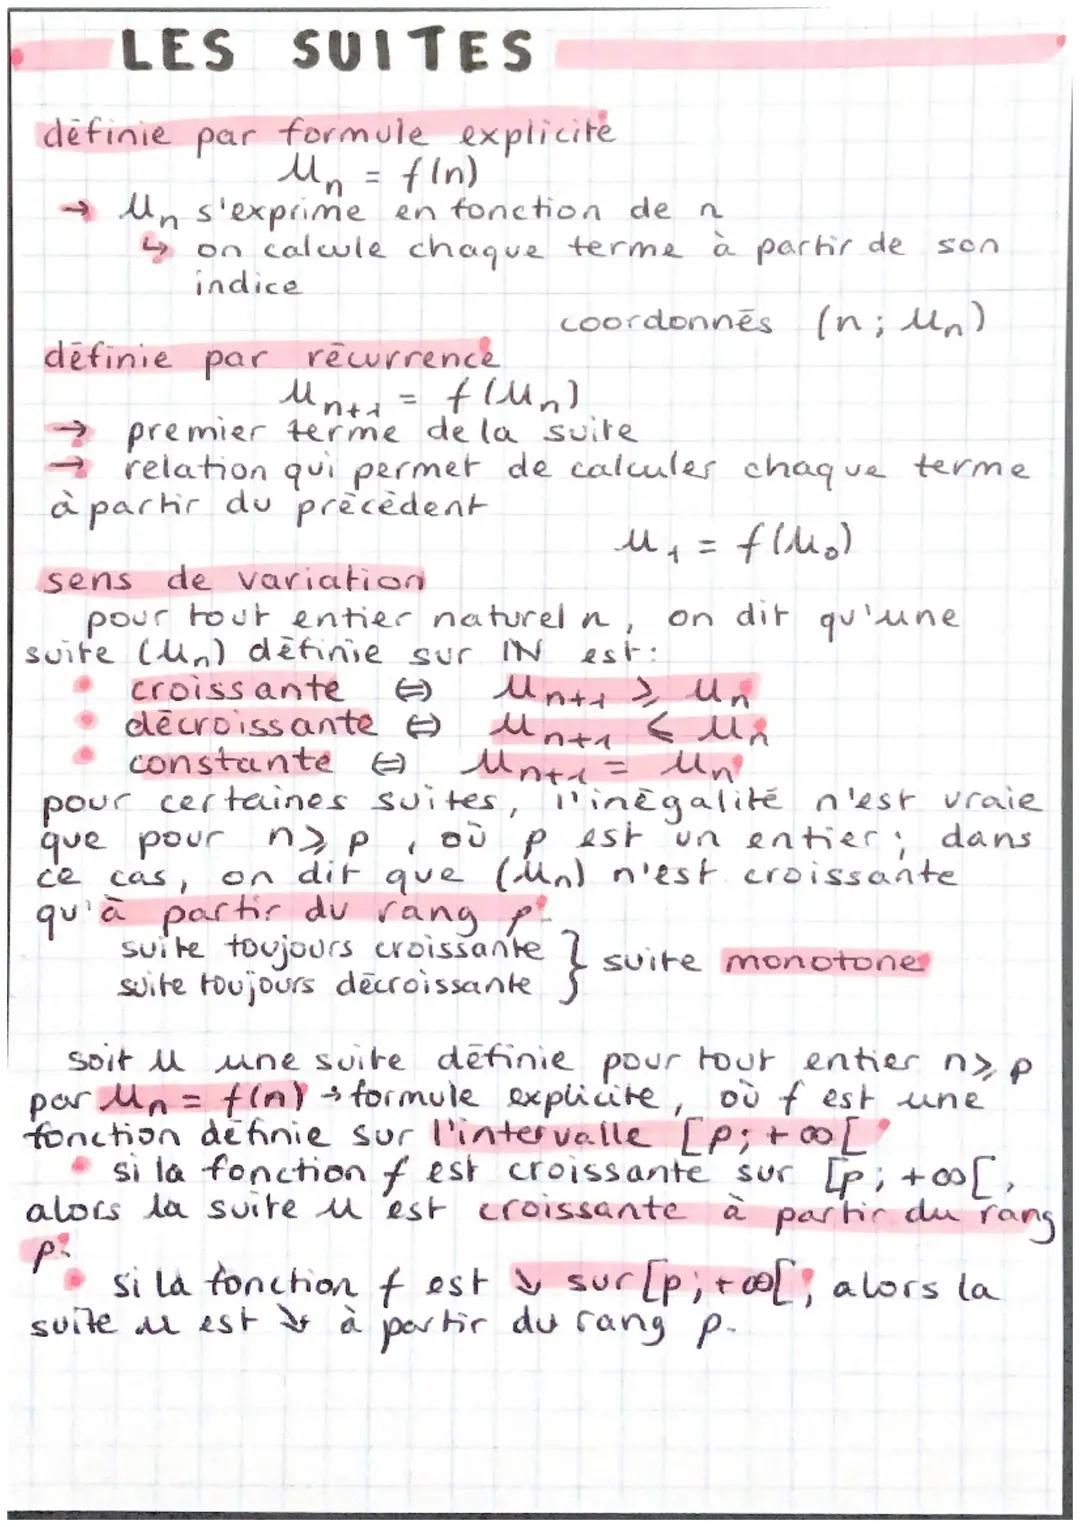 LES SUITES
définie par formule explicite
Un = f(n)
→ Un s'exprime en fonction de n
↳ on calcule chaque terme à partir de son
indice
coordonnés (n; Un)
définie par récurrence
Un+1 = f(Un)
→ premier terme de la suite
→ relation qui permet de calculer chaque terme
à partir du précédent
U1 = f(U0)
sens de variation
pour tout entier naturel n, on dit qu'une
suite (Un) définie sur IN est:
• croissante ⇔ Un+1 ⩾ Un
• décroissante ⇔ Un+1 ⩽ Un
• constante ⇔ Un+1 = Un
pour certaines suites, l'inégalité n'est vraie
que pour n ⩾ p, où p est un entier; dans
ce cas, on dit que (Un) n'est croissante
qu'à partir du rang p.
suite toujours croissante } suite monotone
suite toujours décroissante
soit U une suite définie pour tout entier n ⩾ p
par Un = f(n) → formule explicite, où f est une
fonction définie sur l'intervalle [p; +∞[
• si la fonction f est croissante sur [p; +∞[,
alors la suite U est croissante à partir du rang
p.
• si la fonction f est ↘ sur [p; +∞[, alors la
suite U est ↘ à partir du rang p.